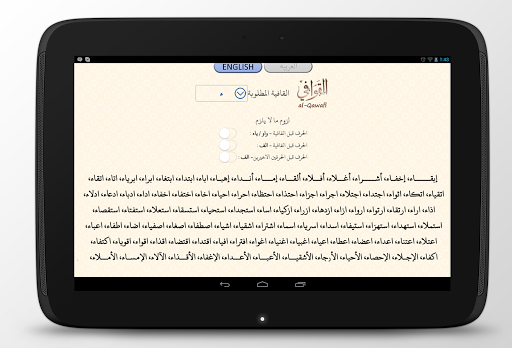 1:43
ENGLISH العربية
القوافي
al-Qawafi
القافية المطلوبة ء
لزوم ما لا يلزم
الحرف قبل القافية - واو / ياء :
الحرف قبل القافية - الف :
الحرف قبل الحرفين الاخيرين - الف :
إبقـــاء، إخفاء، أشـــراء، أغـــلاء، أفـــلاء، ألقـــاء، إمـــاء، أنـــداء، إهبـــاء، اباء، ابتداء، ابتغاء، ابراء، ابرياء، اتاء، اتقاء،
اتقياء، اتكاء، اثواء، اجتداء، اجتلاء، اجراء، اجزاء، احتذاء، احتظاء، احراء، احياء، اخاء، اختفاء، اخفاء، اداء، ادباء، ادعاء، ادلاء،
اذاء، اراء، ارتقاء، ارتواء، ارواء، ازاء، ازدهاء، ازراء، ازكياء، اساء، استجداء، استحياء، استسقاء، استعلاء، استفتاء، استقصاء،
استملاء، استهداء، استهزاء، استيفاء، اسداء، اسرياء، اسماء، اشتراء، اشقياء، اشياء، اصطفاء، اصغاء، اصفياء، اضاء، اطفاء، اعباء،
اعتلاء، اعتناء، اعداء، اعضاء، اعطاء، اعياء، اغبياء، اغنياء، اغواء، افتراء، افياء، اقتداء، اقتضاء، اقذاء، اقواء، اقوياء، اكتفاء،
اكفاء، الإجـلاء، الإحصاء، الأحياء، الأرجاء، الأشقيـاء، الأعبـــاء، الأعـــداء، الإغفـاء، الأقـــذاء، الآلاء، الإمـــاء، الأمـــلاء،